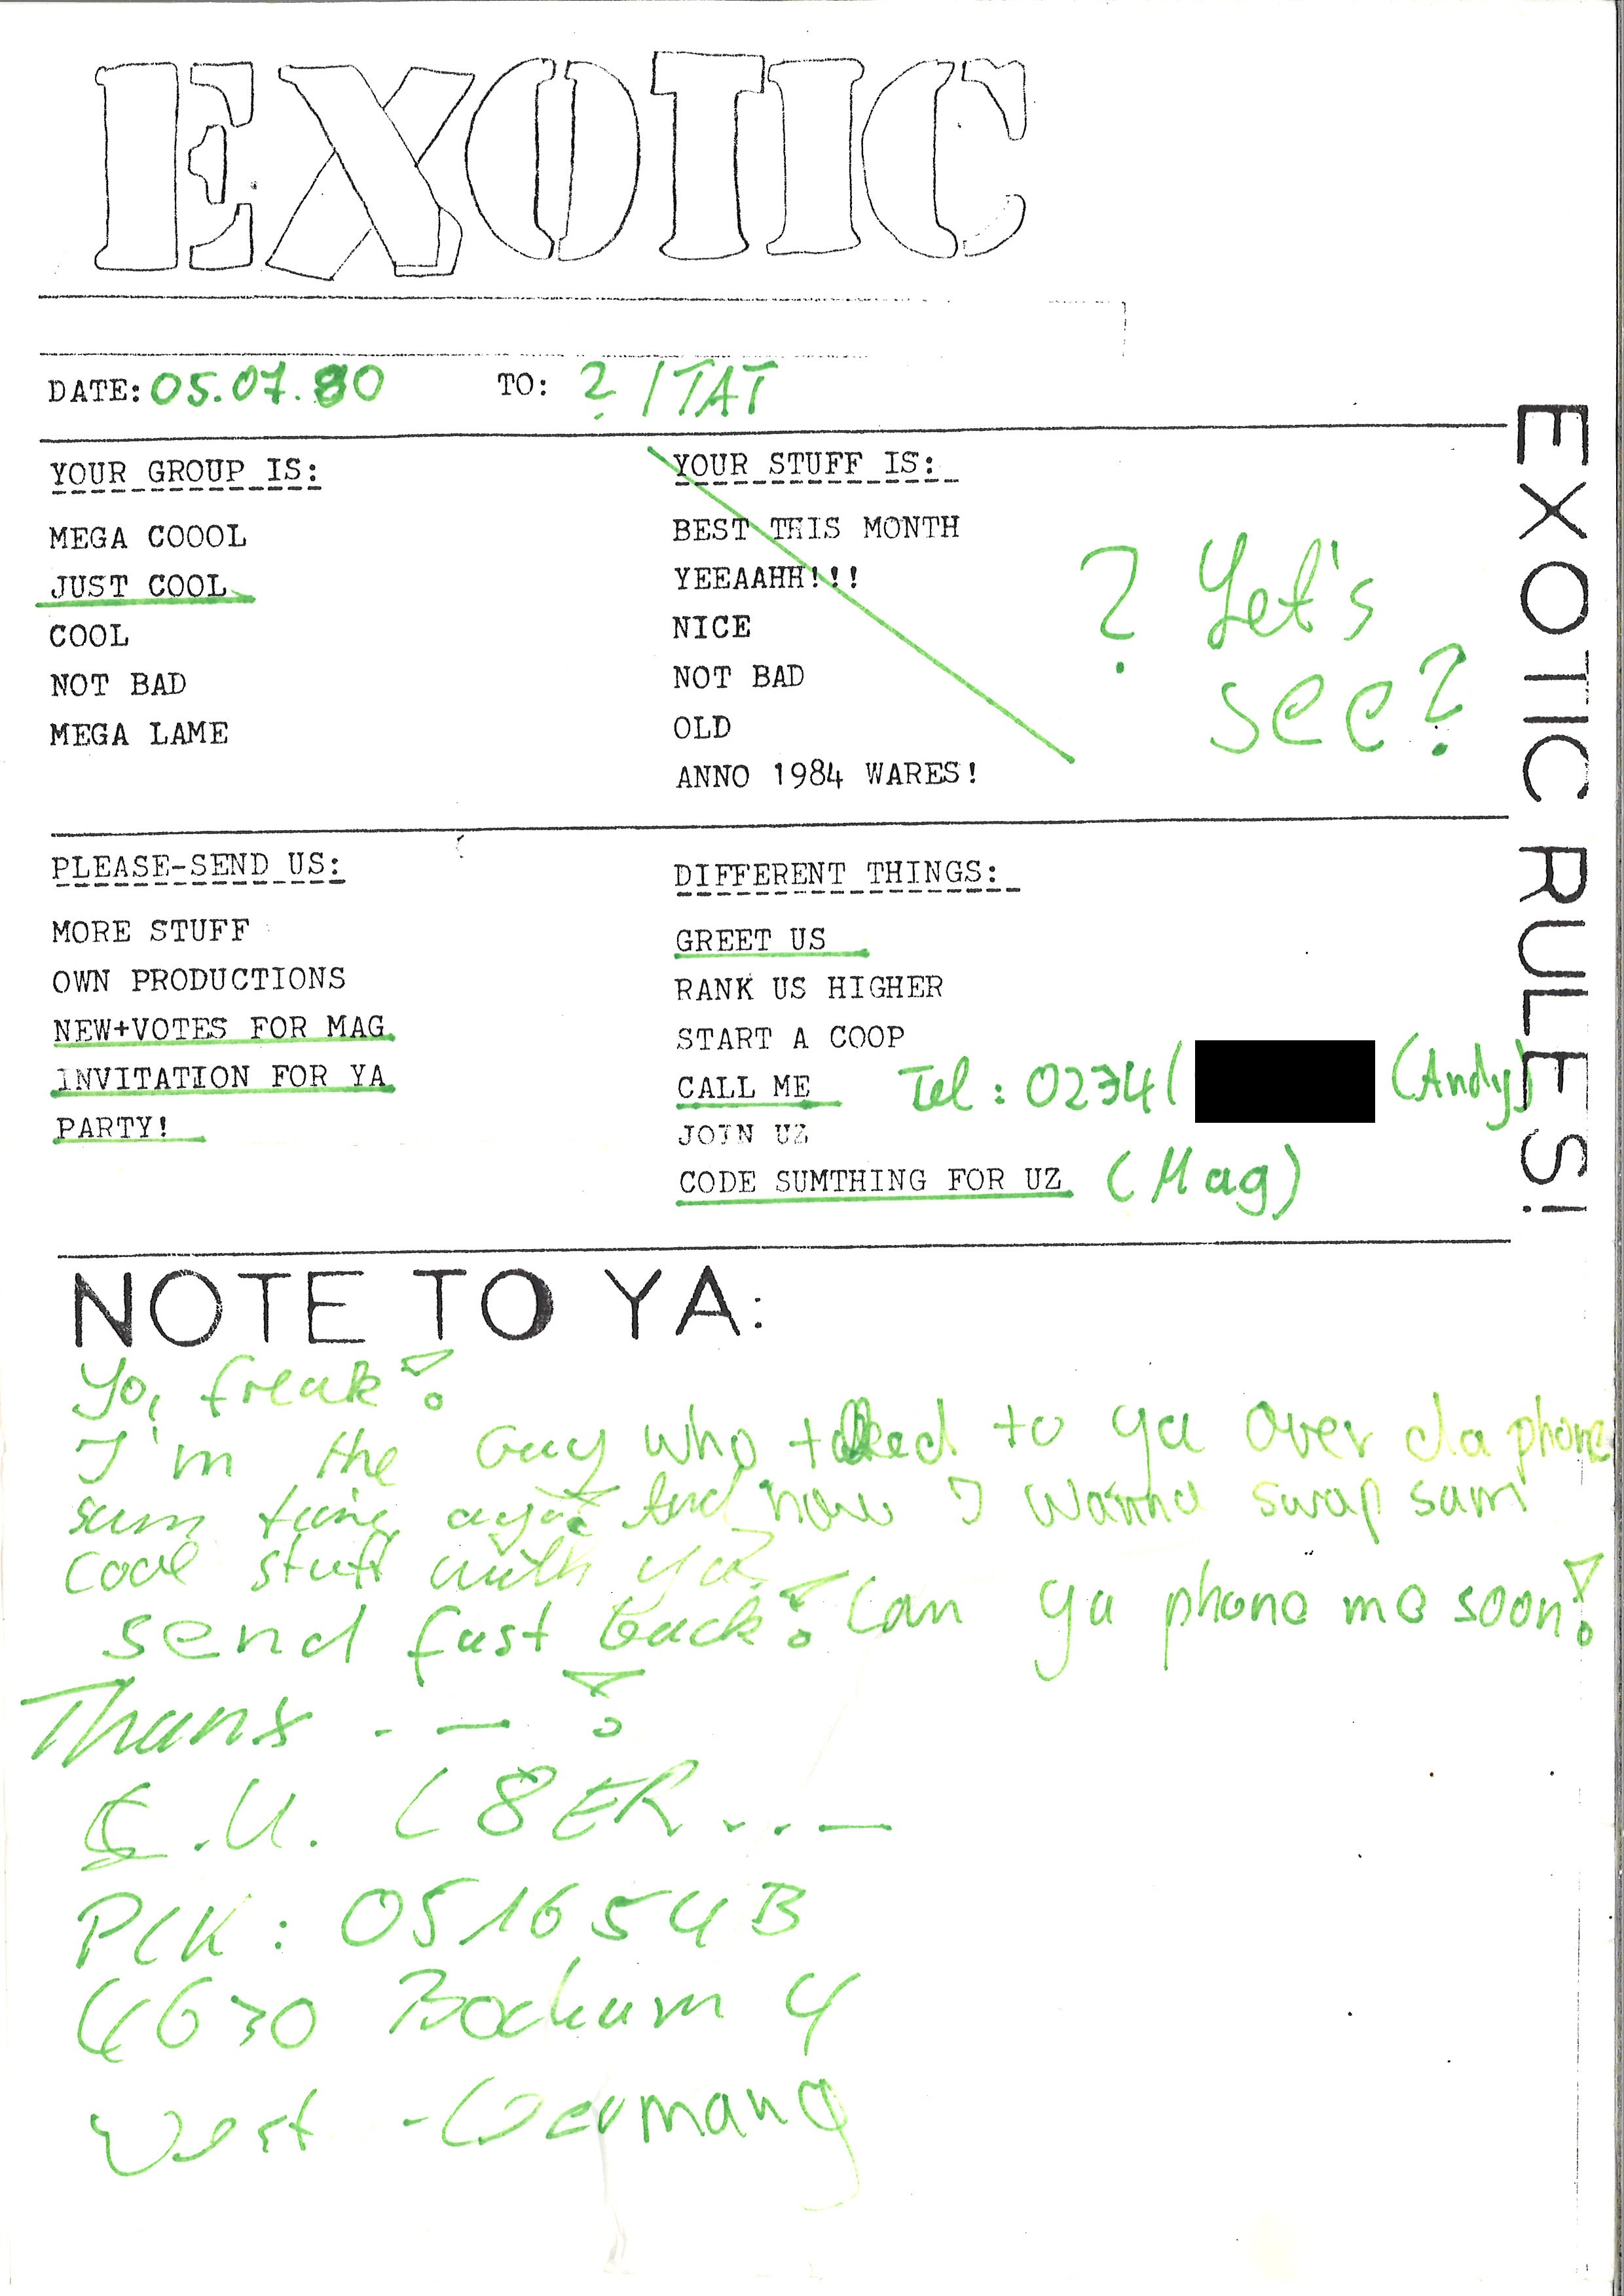 EXOTIC
DATE: 05.07.90 TO: ? / TAT
YOUR GROUP IS:
MEGA COOOL
JUST COOL
COOL
NOT BAD
MEGA LAME
YOUR STUFF IS:
BEST THIS MONTH
YEEAAHH!!!
NICE
NOT BAD
OLD
ANNO 1984 WARES!
? Let's
see?
PLEASE-SEND US:
MORE STUFF
OWN PRODUCTIONS
NEW+VOTES FOR MAG
INVITATION FOR YA
PARTY!
DIFFERENT THINGS:
GREET US
RANK US HIGHER
START A COOP
CALL ME Tel: 0234/ (Andy)
JOIN UZ
CODE SUMTHING FOR UZ (Mag)
EXOTIC RULES!
NOTE TO YA:
Yo, freak!
I'm the Guy who talked to ya over da phone
sum time ago! And now I wanna swap sum
cool stuff with ya.
send fast back! Can ya phone me soon!
Thanx . — !
C.U. L8ER . . . —
PLK: 051654B
4630 Bochum 4
West-Germany